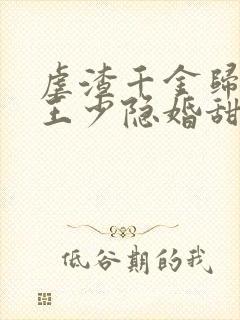 虐渣千金歸
王少隐婚甜
低谷期的我